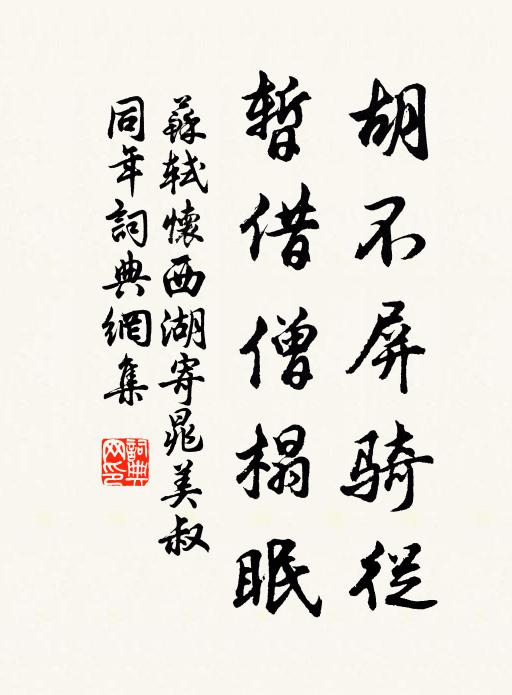 胡不屏騎從
暫借僧榻眠
蘇軾懷西湖寄晁美叔
同年詞典網集
詞典
网印